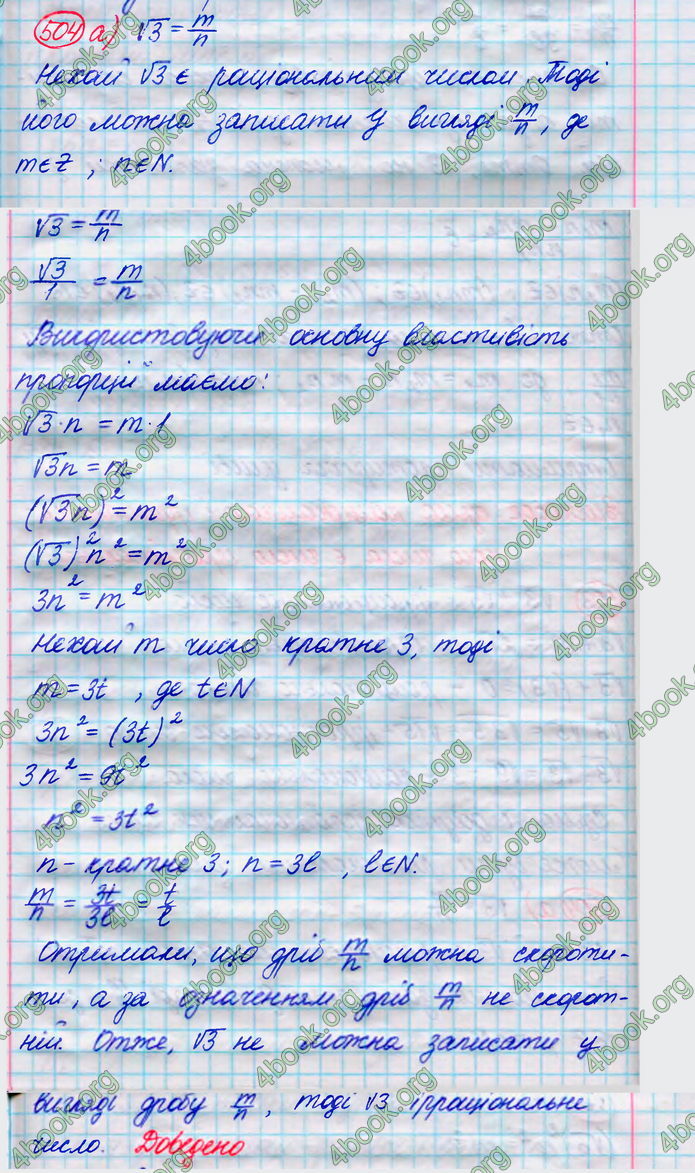 504 а) √3 = m/n
Нехай √3 є раціональним числом. Тоді
його можна записати у вигляді m/n, де
m∈Z ; n∈N.
√3 = m/n
√3/1 = m/n
Використовуючи основну властивість
пропорції маємо:
√3·n = m·1
√3n = m
(√3n)² = m²
(√3)²n² = m²
3n² = m²
Нехай m число кратне 3, тоді
m = 3t , де t∈N
3n² = (3t)²
3n² = 9t²
n² = 3t²
n - кратне 3; n = 3l , l∈N.
m/n = 3t/3l = t/l
Отримали, що дріб m/n можна скороти-
ти, а за означенням дріб m/n не скорот-
ній. Отже, √3 не можна записати у
вигляді дробу m/n, тоді √3 ірраціональне
число. Доведено
4book.org